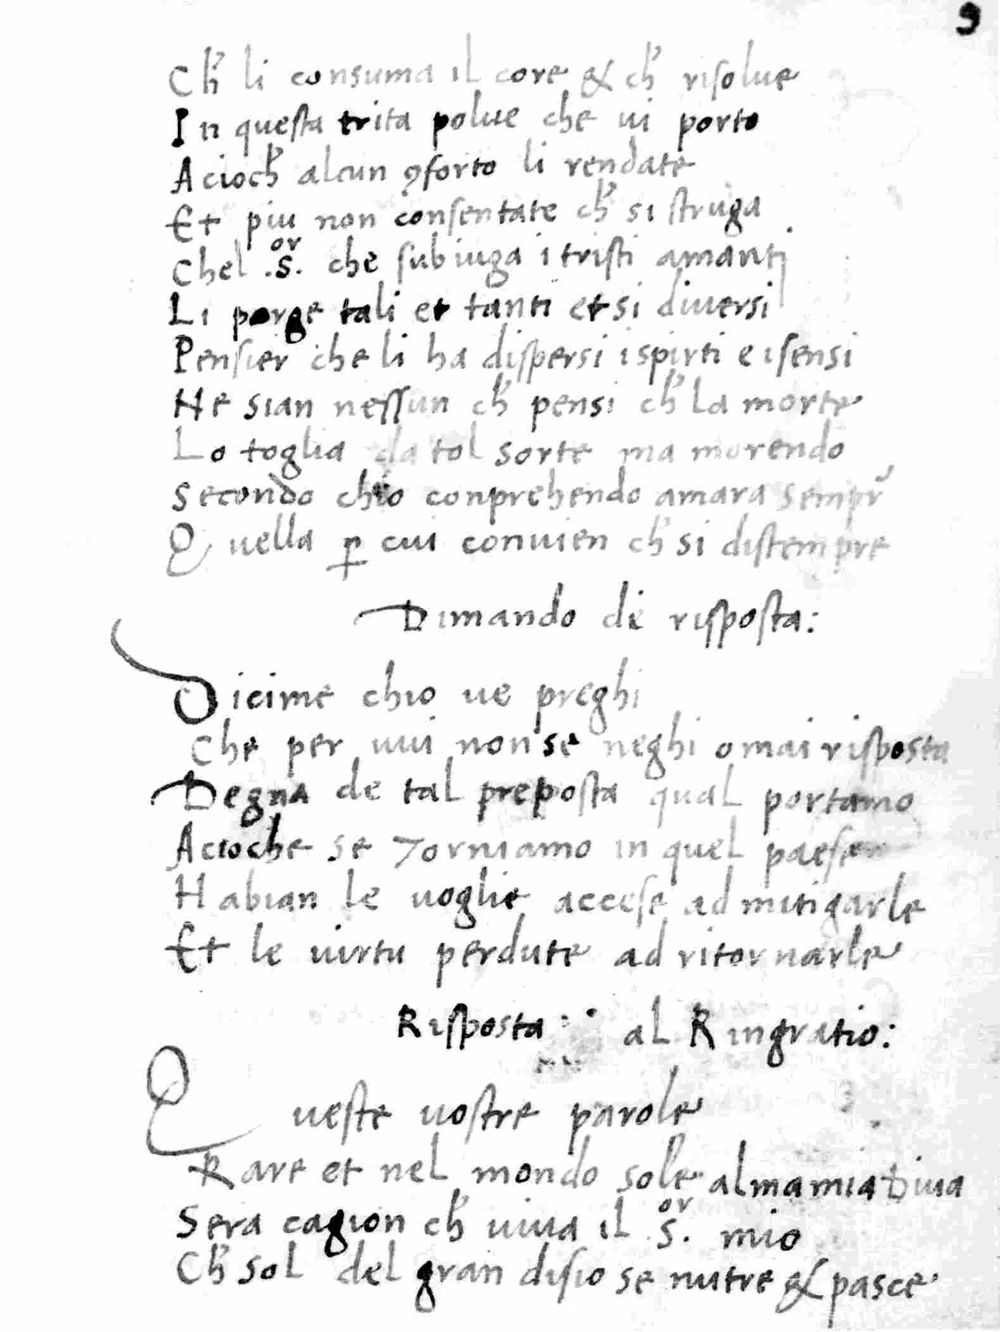 9
Ch̃ li consuma il core & ch̃ risolue
In questa trita polue che ui porto
Acioch̃ alcun ꝯforto li rendate
Et piu non consentate ch̃ si struga
Chel .S.or che subiuga i tristi amanti
Li porge tali et tanti et si diuersi
Pensier che li ha dispersi i spirti e i sensi
Ne sian nessun ch̃ pensi ch̃ la morte
Lo toglia da tal sorte ma morendo
Secondo chio conprehendo amara sempr̃
Quella ꝑ cui conuien ch̃ si distempre
Dimando de risposta:
Dicime chio ue preghi
Che per uui non se neghi omai risposta
Degna de tal preposta qual portamo
Acioche se torniamo in quel paese
Habian le uoglie accese ad mitigarle
Et le uirtu perdute ad ritornarle
Risposta : · al Ringratio:
Queste uostre parole
Rare et nel mondo sole alma mia Diua
Sera cagion ch̃ uiua il .S.or mio
Ch̃ sol del gran disio se nutre & pasce·